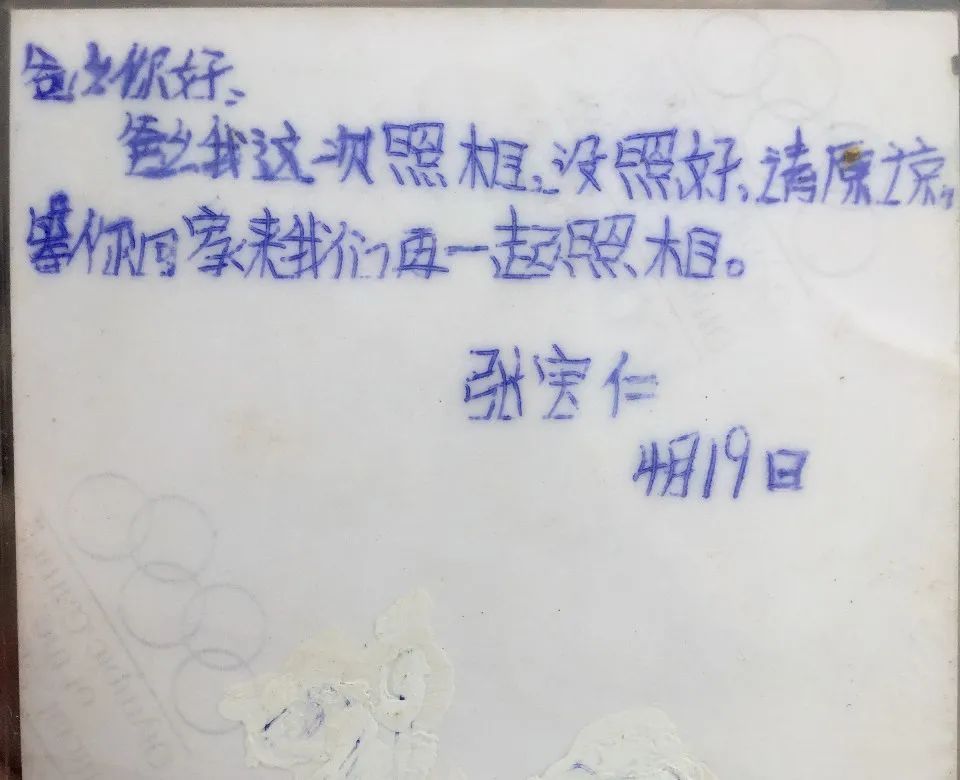 爸々你好、
爸々我这次照相、没照好、请原谅。
等你回家来我们再一起照相。
张宝仁
4月19日